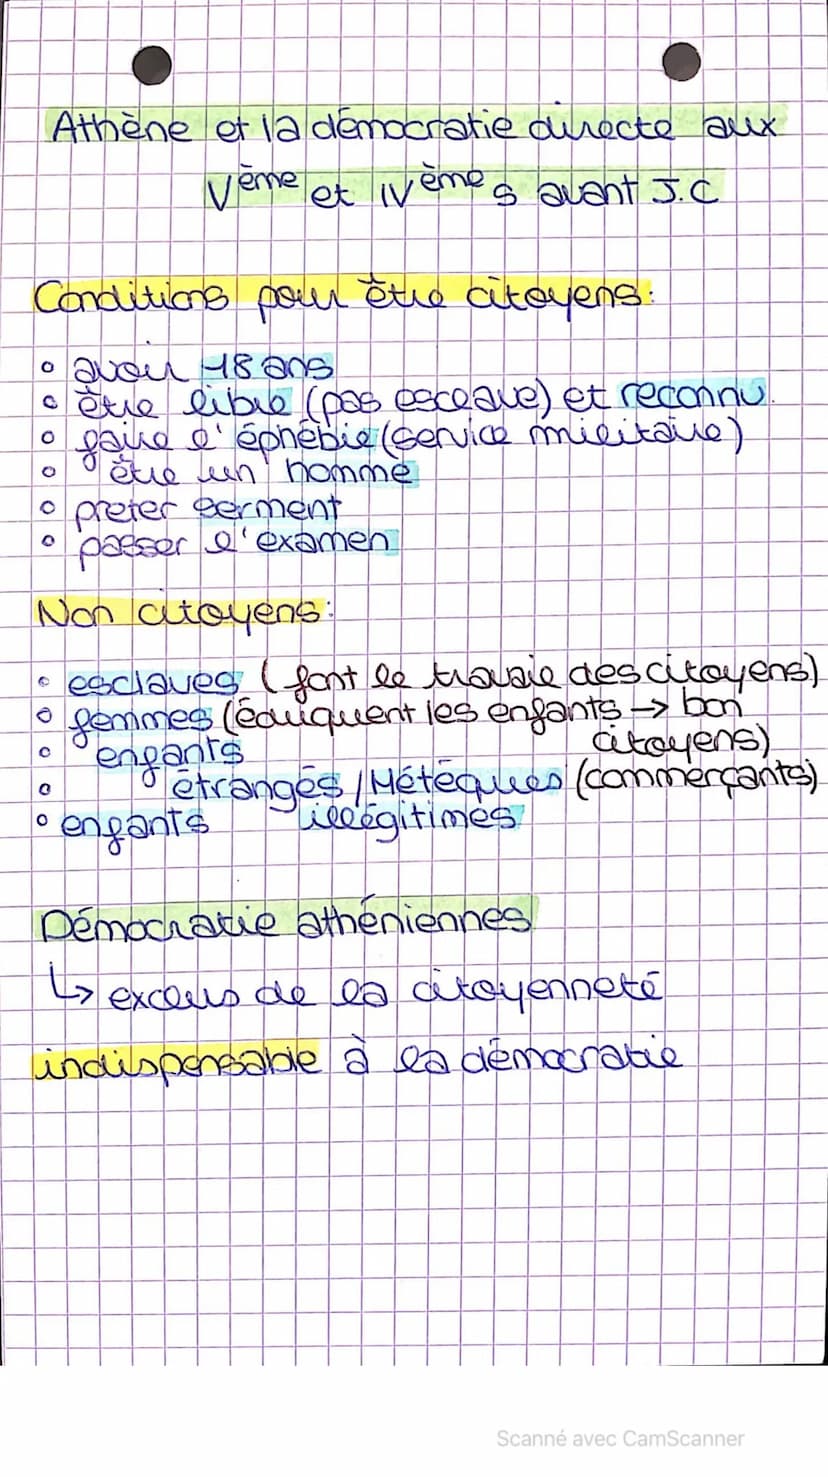 Athène et la démocratie directe aux
Vème et IVème s avant J.C
Conditions pour être citoyens:
avoir 18 ans
être libre (pas esclave) et reconnu.
faire l'éphébie (service militaire)
être un homme
preter serment
passer l'examen
Non citoyens:
esclaves (font le travaie des citoyens)
femmes (éduiquent les enfants → bon
citoyens)
enfants
étrangés / Métèques (commerçants)
enfants illégitimes
Démocratie athéniennes
↳ exclus de la citoyenneté
indispensable à la démocratie
Scanné avec CamScanner